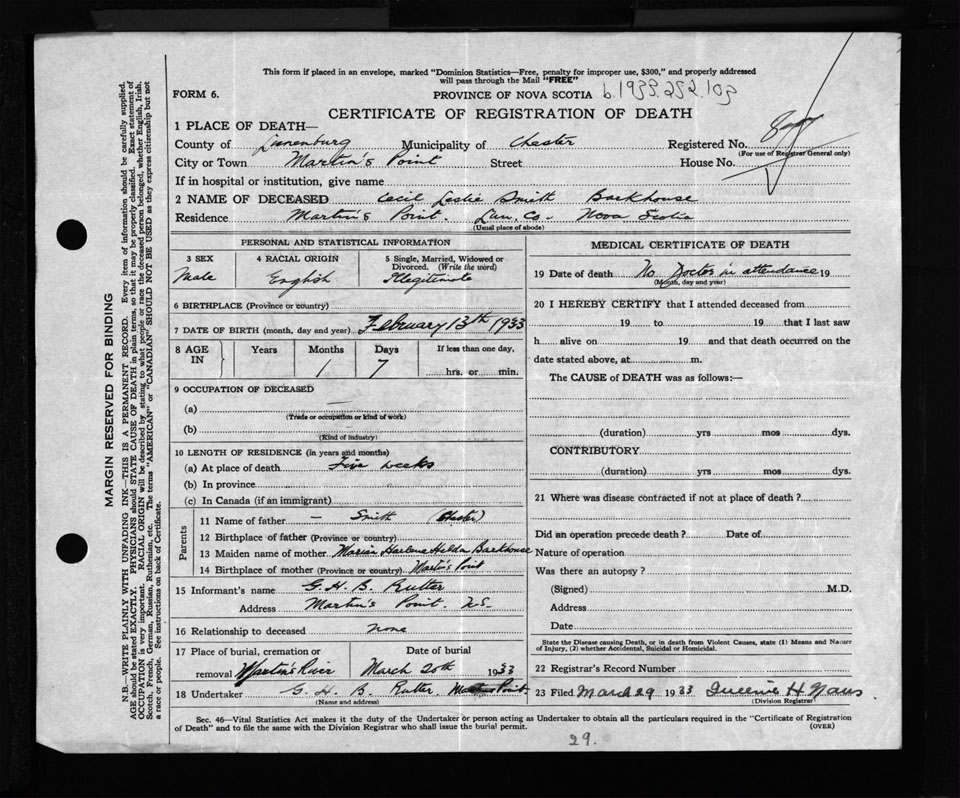 This form if placed in an envelope, marked "Dominion Statistics—Free, penalty for improper use, $300," and properly addressed
will pass through the Mail "FREE"
FORM 6. PROVINCE OF NOVA SCOTIA b.1933.252.103
CERTIFICATE OF REGISTRATION OF DEATH
1 PLACE OF DEATH—
County of Lunenburg Municipality of Chester Registered No.
(For use of Registrar General only)
City or Town Martin's Point Street House No.
If in hospital or institution, give name
2 NAME OF DECEASED Cecil Leslie Smith Backhouse
Residence Martin's Point. Lun. Co. Nova Scotia
(Usual place of abode)
PERSONAL AND STATISTICAL INFORMATION
3 SEX 4 RACIAL ORIGIN 5 Single, Married, Widowed or
Divorced. (Write the word)
Male English Illegitimate
6 BIRTHPLACE (Province or country)
7 DATE OF BIRTH (month, day and year) February 13th 1933
8 AGE IN Years Months Days If less than one day,
1 7 hrs. or min.
9 OCCUPATION OF DECEASED
(a) —
(Trade or occupation or kind of work)
(b) —
(Kind of industry)
10 LENGTH OF RESIDENCE (in years and months)
(a) At place of death Five weeks
(b) In province
(c) In Canada (if an immigrant)
Parents
11 Name of father — Smith (Chester)
12 Birthplace of father (Province or country)
13 Maiden name of mother Marian Harlene Hilda Backhouse
14 Birthplace of mother (Province or country) Martin's Point
15 Informant's name G. H. B. Rutter
Address Martin's Point, N.S.
16 Relationship to deceased none
17 Place of burial, cremation or Date of burial
removal Martin's River March 20th 1933
18 Undertaker G. H. B. Rutter. Martin's Point
(Name and address)
MEDICAL CERTIFICATE OF DEATH
19 Date of death No Doctor in attendance 19
(Month, day and year)
20 I HEREBY CERTIFY that I attended deceased from
19 to 19 that I last saw
h alive on 19 and that death occurred on the
date stated above, at m.
The CAUSE of DEATH was as follows:—
(duration) yrs mos dys.
CONTRIBUTORY
(duration) yrs. mos. dys.
21 Where was disease contracted if not at place of death?
Did an operation precede death? Date of
Nature of operation
Was there an autopsy?
(Signed) M.D.
Address
Date
State the Disease causing Death, or in death from Violent Causes, state (1) Means and Nature
of Injury, (2) whether Accidental, Suicidal or Homicidal.
22 Registrar's Record Number
23 Filed March 29 1933 Queenie H Naus
(Division Registrar)
Sec. 46—Vital Statistics Act makes it the duty of the Undertaker or person acting as Undertaker to obtain all the particulars required in the "Certificate of Registration
of Death" and to file the same with the Division Registrar who shall issue the burial permit. (OVER)
29.
MARGIN RESERVED FOR BINDING
N.B.—WRITE PLAINLY WITH UNFADING INK—THIS IS A PERMANENT RECORD. Every item of information should be carefully supplied.
AGE should be stated EXACTLY. PHYSICIANS should STATE CAUSE OF DEATH in plain terms, so that it may be properly classified. Exact statement of
OCCUPATION is very important. RACIAL ORIGIN will be described by stating to what people or race the deceased person belonged, whether English, Irish,
Scotch, French, German, Russian, Ruthenian, etc. The terms "AMERICAN" or "CANADIAN" SHOULD NOT BE USED as they express citizenship but not
a race or people. See instructions on back of Certificate.